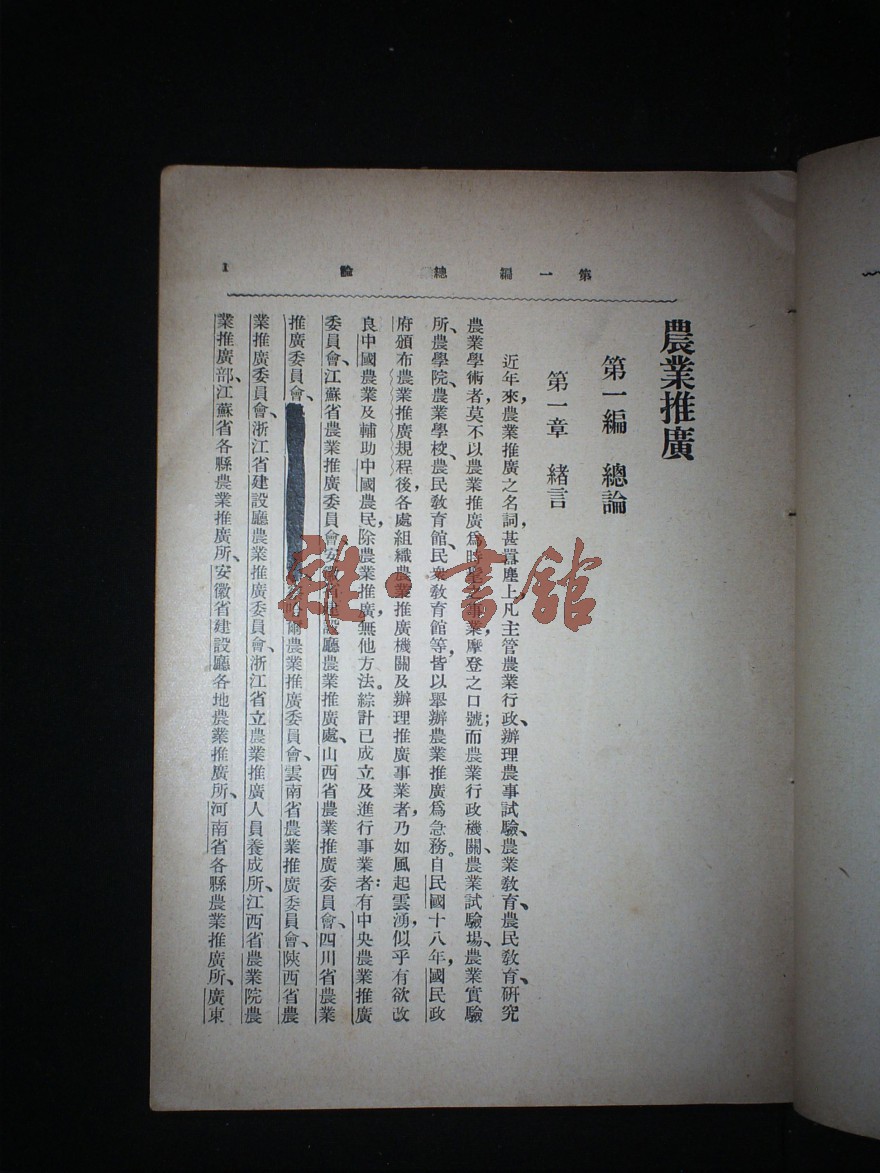 第一編 總論 1
農業推廣
第一編 總論
第一章 緒言
近年來,農業推廣之名詞甚囂塵上,凡主管農業行政、辦理農事試驗、農業敎育、農民敎育、硏究
農業學術者,莫不以農業推廣爲時之事業,摩登之口號;而農業行政機關、農業試驗場、農業實驗
所、農學院、農業學校、農民敎育館、民衆敎育館等,皆以舉辦農業推廣爲急務。自民國十八年,國民政
府頒布農業推廣規程後,各處組織農業推廣機關及辦理推廣事業者,乃如風起雲湧,似乎有欲改
良中國農業及輔助中國農民,除農業推廣,無他方法。綜計已成立及進行事業者:有中央農業推廣
委員會、江蘇省農業推廣委員會、安徽省建設廳農業推廣處、山西省農業推廣委員會、四川省農業
推廣委員會、哈爾農業推廣委員會、雲南省農業推廣委員會、陝西省農
業推廣委員會、浙江省建設廳農業推廣委員會、浙江省立農業推廣人員養成所、江西省農業院農
業推廣部、江蘇省各縣農業推廣所、安徽省建設廳各地農業推廣所、河南省各縣農業推廣所、廣東
雜·書館